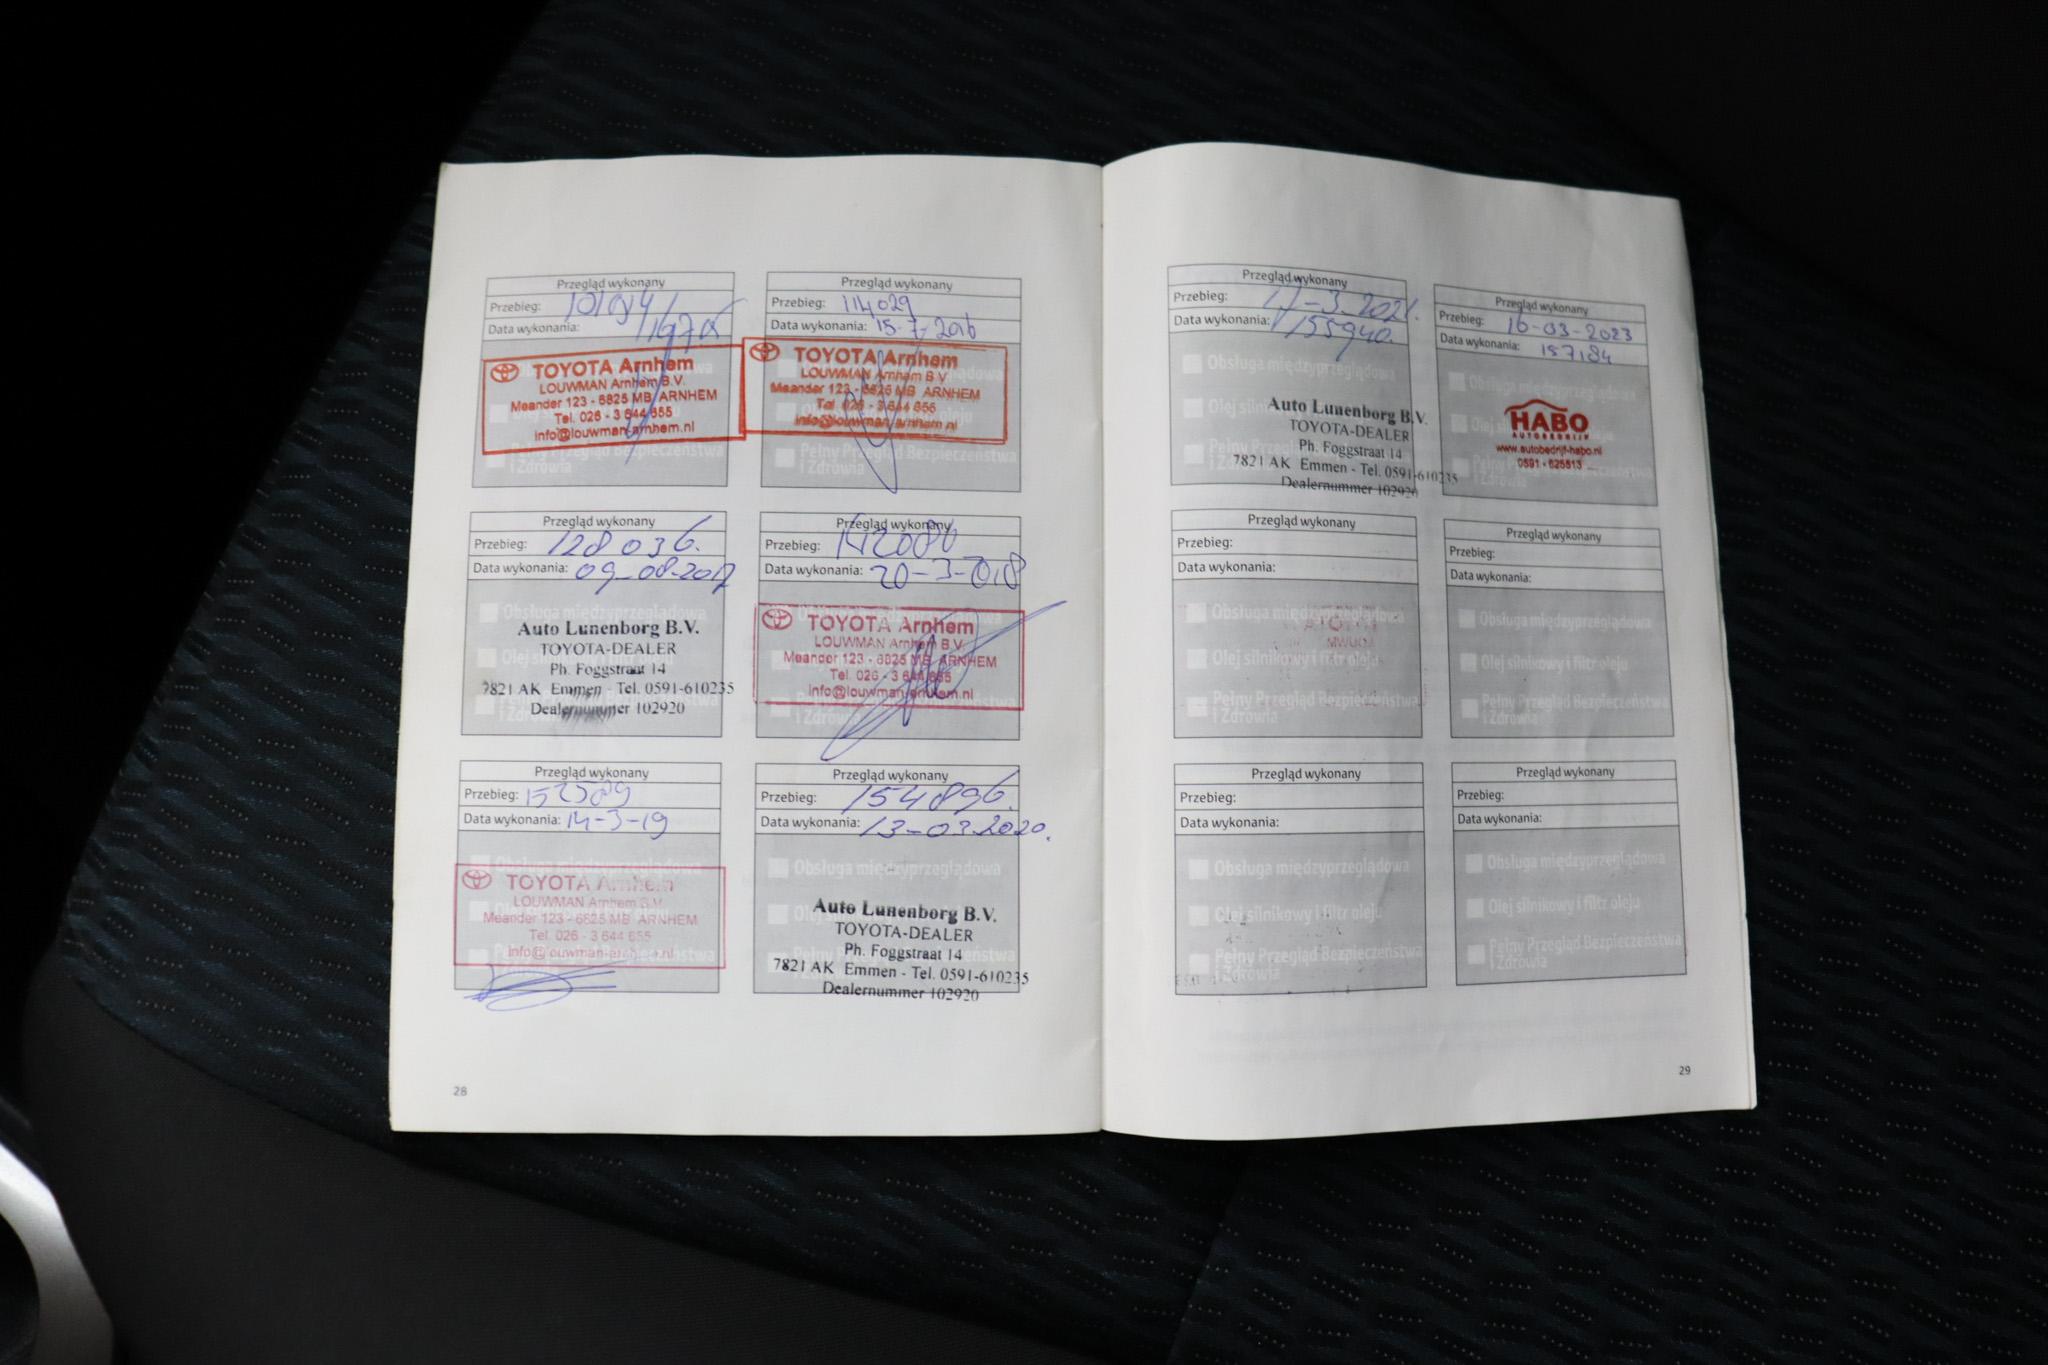 Przegląd wykonany
Przebieg: 101094
Data wykonania:
TOYOTA Arnhem
LOUWMAN Arnhem B.V.
Meander 123 - 6825 MB ARNHEM
Tel. 026 - 3 644 655
info@louwman-arnhem.nl
Pełny Przegląd Bezpieczeństwa
i Zdrowia
Przegląd wykonany
Przebieg: 114029
Data wykonania: 15-7-2016
TOYOTA Arnhem
LOUWMAN Arnhem B.V.
Meander 123 - 6825 MB ARNHEM
Tel. 026 - 3 644 655
info@louwman-arnhem.nl
Pełny Przegląd Bezpieczeństwa
i Zdrowia
Przegląd wykonany
Przebieg: 128036.
Data wykonania: 09-08-2017
Obsługa międzyprzeglądowa
Auto Lunenborg B.V.
TOYOTA-DEALER
Ph. Foggstraat 14
7821 AK Emmen - Tel. 0591-610235
Dealernummer 102920
Przegląd wykonany
Przebieg: 142086
Data wykonania: 20-3-2018
TOYOTA Arnhem
LOUWMAN Arnhem B.V.
Meander 123 - 6825 MB ARNHEM
Tel. 026 - 3 644 655
info@louwman-arnhem.nl
i Zdrowia
Przegląd wykonany
Przebieg: 152589
Data wykonania: 14-3-19
Obsługa międzyprzeglądowa
TOYOTA Arnhem
LOUWMAN Arnhem B.V.
Meander 123 - 6825 MB ARNHEM
Tel. 026 - 3 644 655
info@louwman-arnhem.nl
Przegląd wykonany
Przebieg: 154896.
Data wykonania: 13-03-2020.
Obsługa międzyprzeglądowa
Auto Lunenborg B.V.
TOYOTA-DEALER
Ph. Foggstraat 14
7821 AK Emmen - Tel. 0591-610235
Dealernummer 102920
28
Przegląd wykonany
Przebieg: 11-3-2021.
Data wykonania: 155940.
Obsługa międzyprzeglądowa
Auto Lunenborg B.V.
TOYOTA-DEALER
Ph. Foggstraat 14
7821 AK Emmen - Tel. 0591-610235
Dealernummer 102920
Przegląd wykonany
Przebieg: 16-03-2023
Data wykonania: 157184
Obsługa międzyprzeglądowa
HABO
AUTOBEDRIJF
www.autobedrijf-habo.nl
0591 - 625513
Przegląd wykonany
Przebieg:
Data wykonania:
Obsługa międzyprzeglądowa
Olej silnikowy i filtr oleju
Pełny Przegląd Bezpieczeństwa
i Zdrowia
Przegląd wykonany
Przebieg:
Data wykonania:
Obsługa międzyprzeglądowa
Olej silnikowy i filtr oleju
Pełny Przegląd Bezpieczeństwa
i Zdrowia
Przegląd wykonany
Przebieg:
Data wykonania:
Obsługa międzyprzeglądowa
Olej silnikowy i filtr oleju
Pełny Przegląd Bezpieczeństwa
i Zdrowia
Przegląd wykonany
Przebieg:
Data wykonania:
Obsługa międzyprzeglądowa
Olej silnikowy i filtr oleju
Pełny Przegląd Bezpieczeństwa
i Zdrowia
29